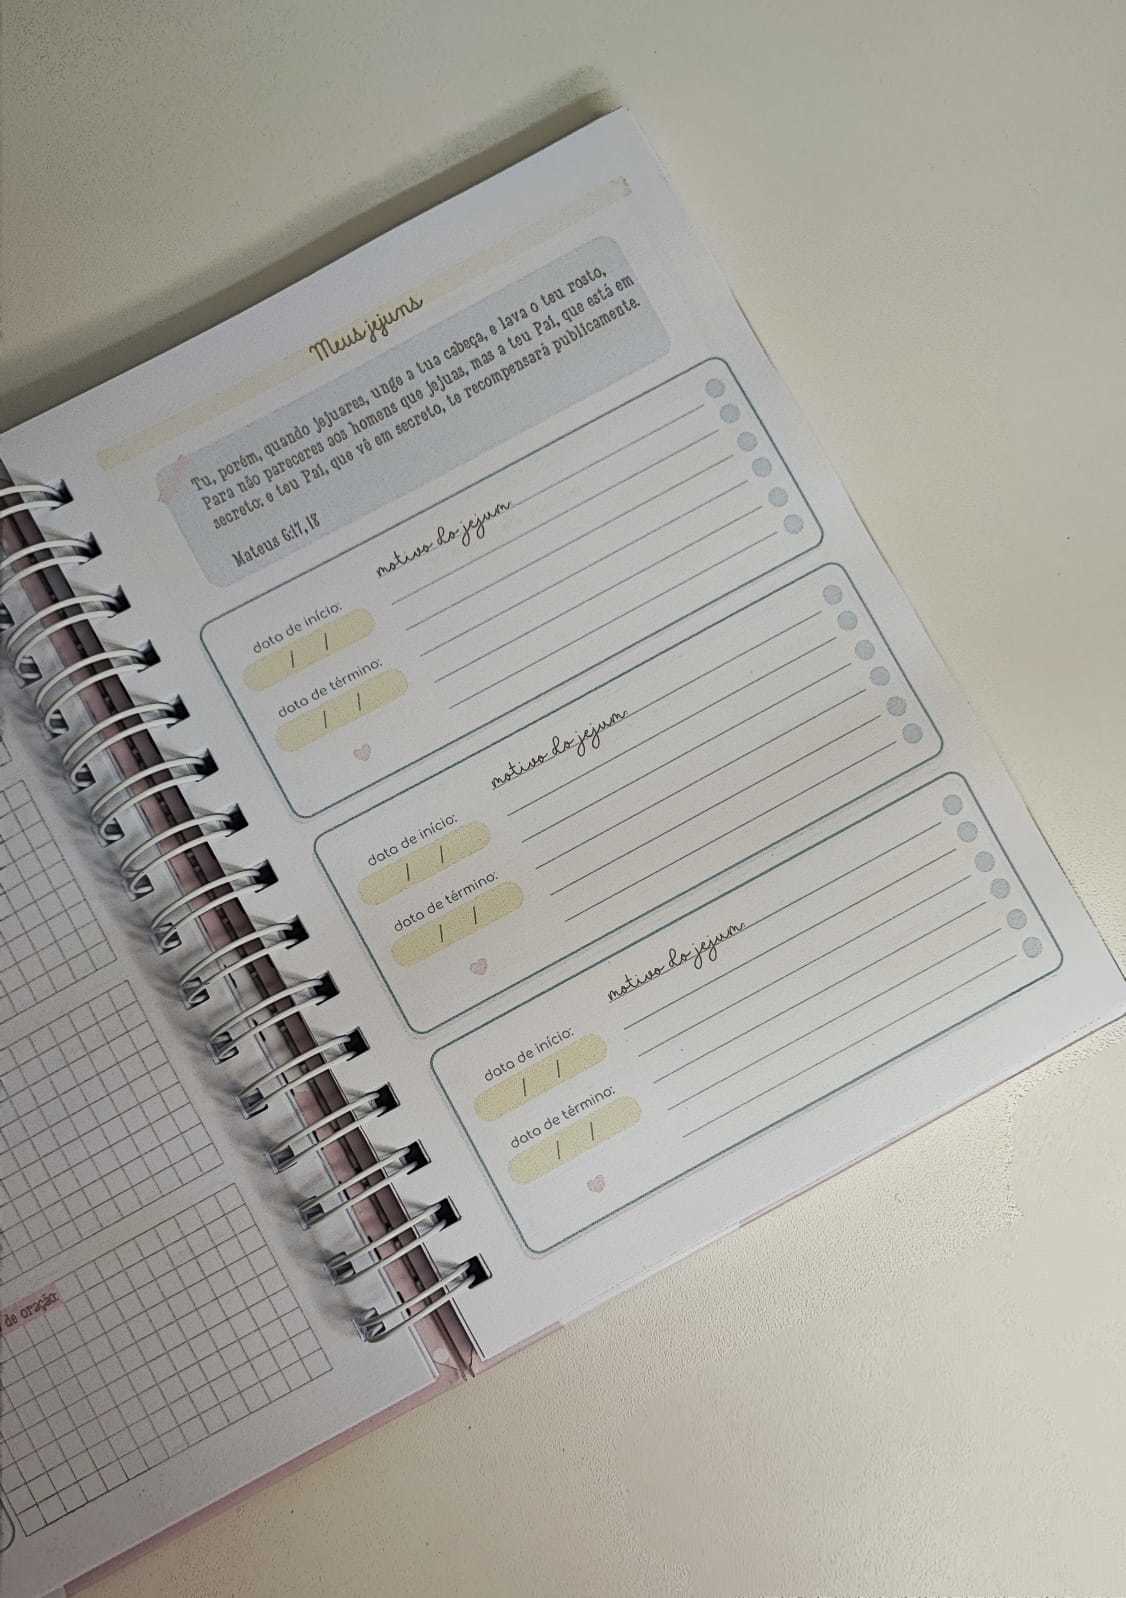 Meus jejuns
Tu, porém, quando jejuares, unge a tua cabeça, e lava o teu rosto,
Para não pareceres aos homens que jejuas, mas a teu Pai, que está em
secreto; e teu Pai, que vê em secreto, te recompensará publicamente.
Mateus 6:17,18
motivo do jejum:
data de início:
/ /
data de término:
/ /
motivo do jejum:
data de início:
/ /
data de término:
/ /
motivo do jejum:
data de início:
/ /
data de término:
/ /
de oração: